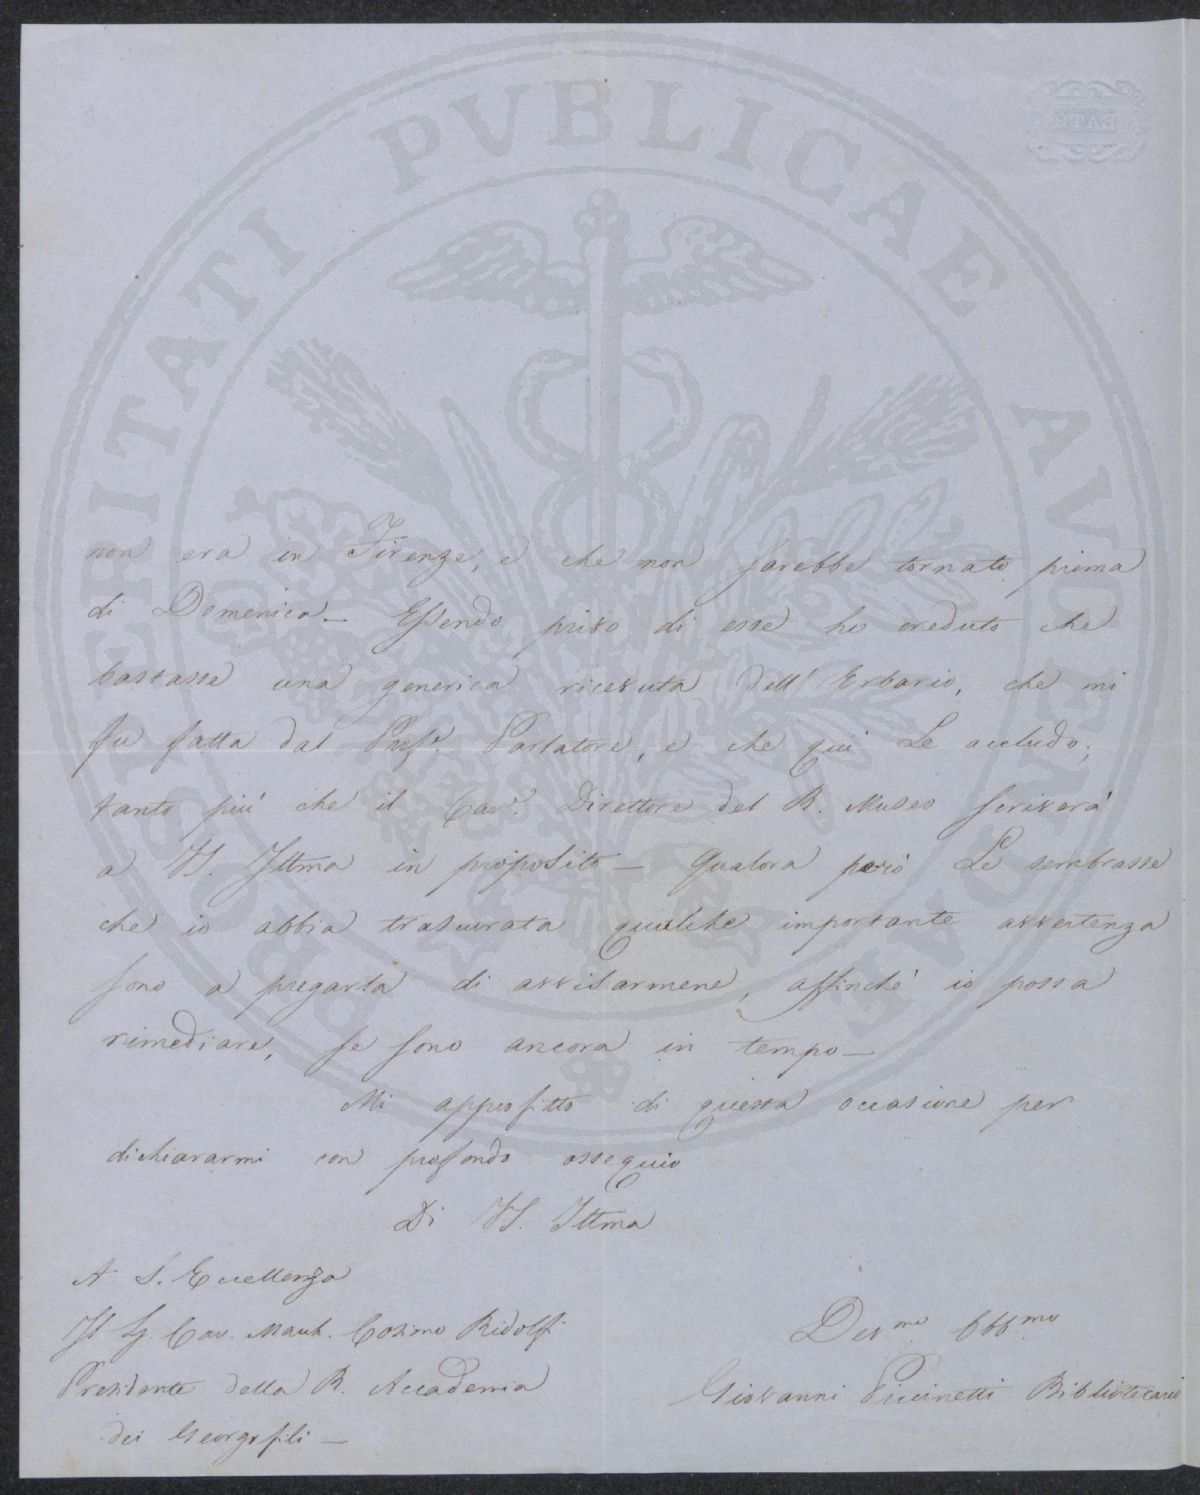 PROSPERITATI PVBLICAE AVGENDAE
BATH
non era in Firenze, e che non sarebbe tornato prima
di Domenica — Essendo privo di esse ho creduto che
bastasse una generica ricevuta dell' Erbario, che mi
fu fatta dal Profe. Parlatore, e che qui Le accludo;
tanto più che il Cave. Direttore del R. Museo scriverà
a VS. Illma in proposito — Qualora però Le sembrasse
che io abbia trascurata qualche importante avvertenza
sono a pregarla di avvisarmene, affinchè io possa
rimediare, se sono ancora in tempo —
Mi approfitto di questa occasione per
dichiararmi con profondo ossequio
Di VS. Illma
A S. Eccellenza
Il Sg. Cav. March. Cosimo Ridolfi
Presidente della R. Accademia
dei Georgofili —
Devmo Obbmo
Giovanni Piccinetti Bibliotecario